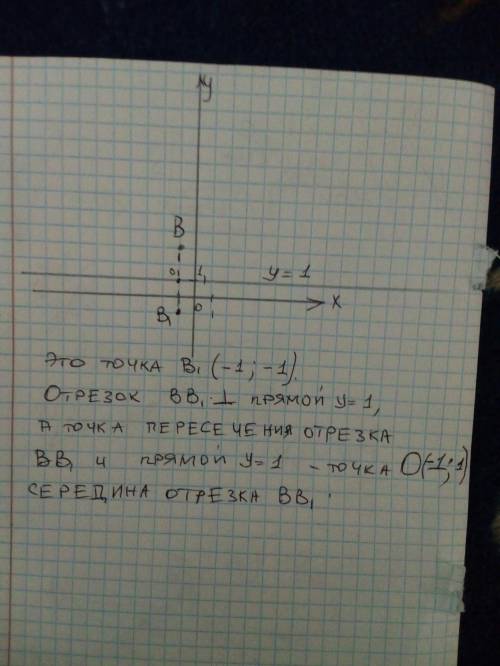 y
B
O, 1
y = 1
B₁ 0 x
ЭТО ТОЧКА B₁ (-1; -1).
ОТРЕЗОК BB₁ ⊥ ПРЯМОЙ y=1,
А ТОЧКА ПЕРЕСЕЧЕНИЯ ОТРЕЗКА
BB₁ И ПРЯМОЙ y=1 - ТОЧКА O(-1; 1)
СЕРЕДИНА ОТРЕЗКА BB₁.